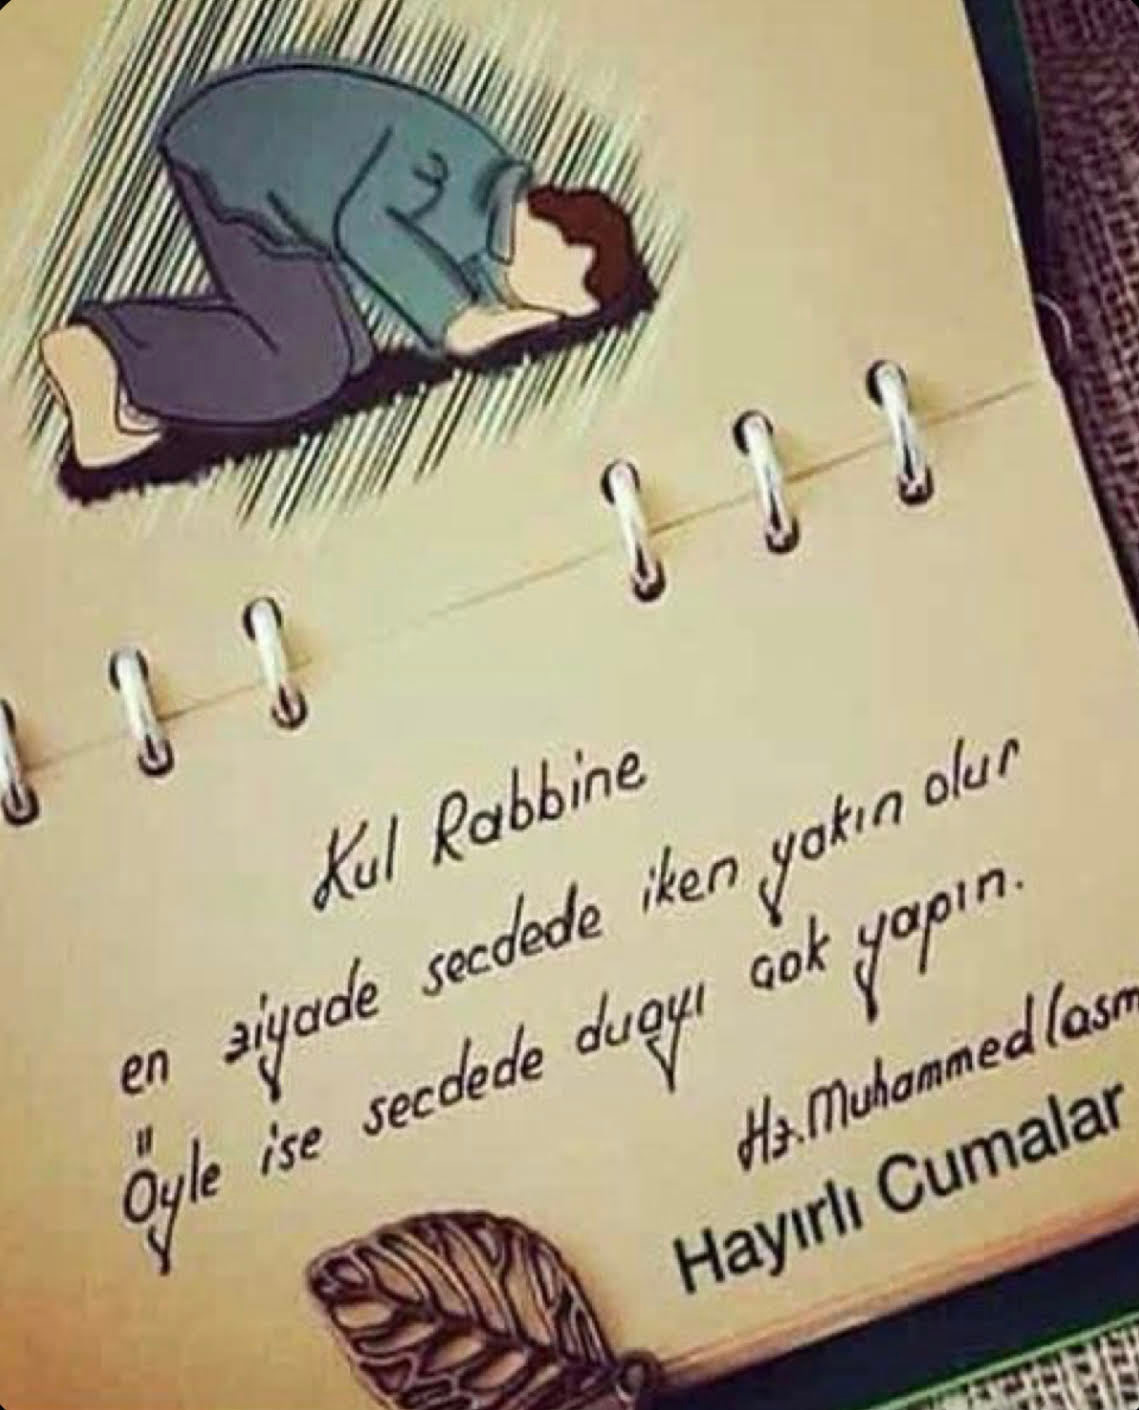 Kul Rabbine
en ziyade secdede iken yakın olur
Öyle ise secdede duayı çok yapın.
Hz. Muhammed (asm
Hayırlı Cumalar